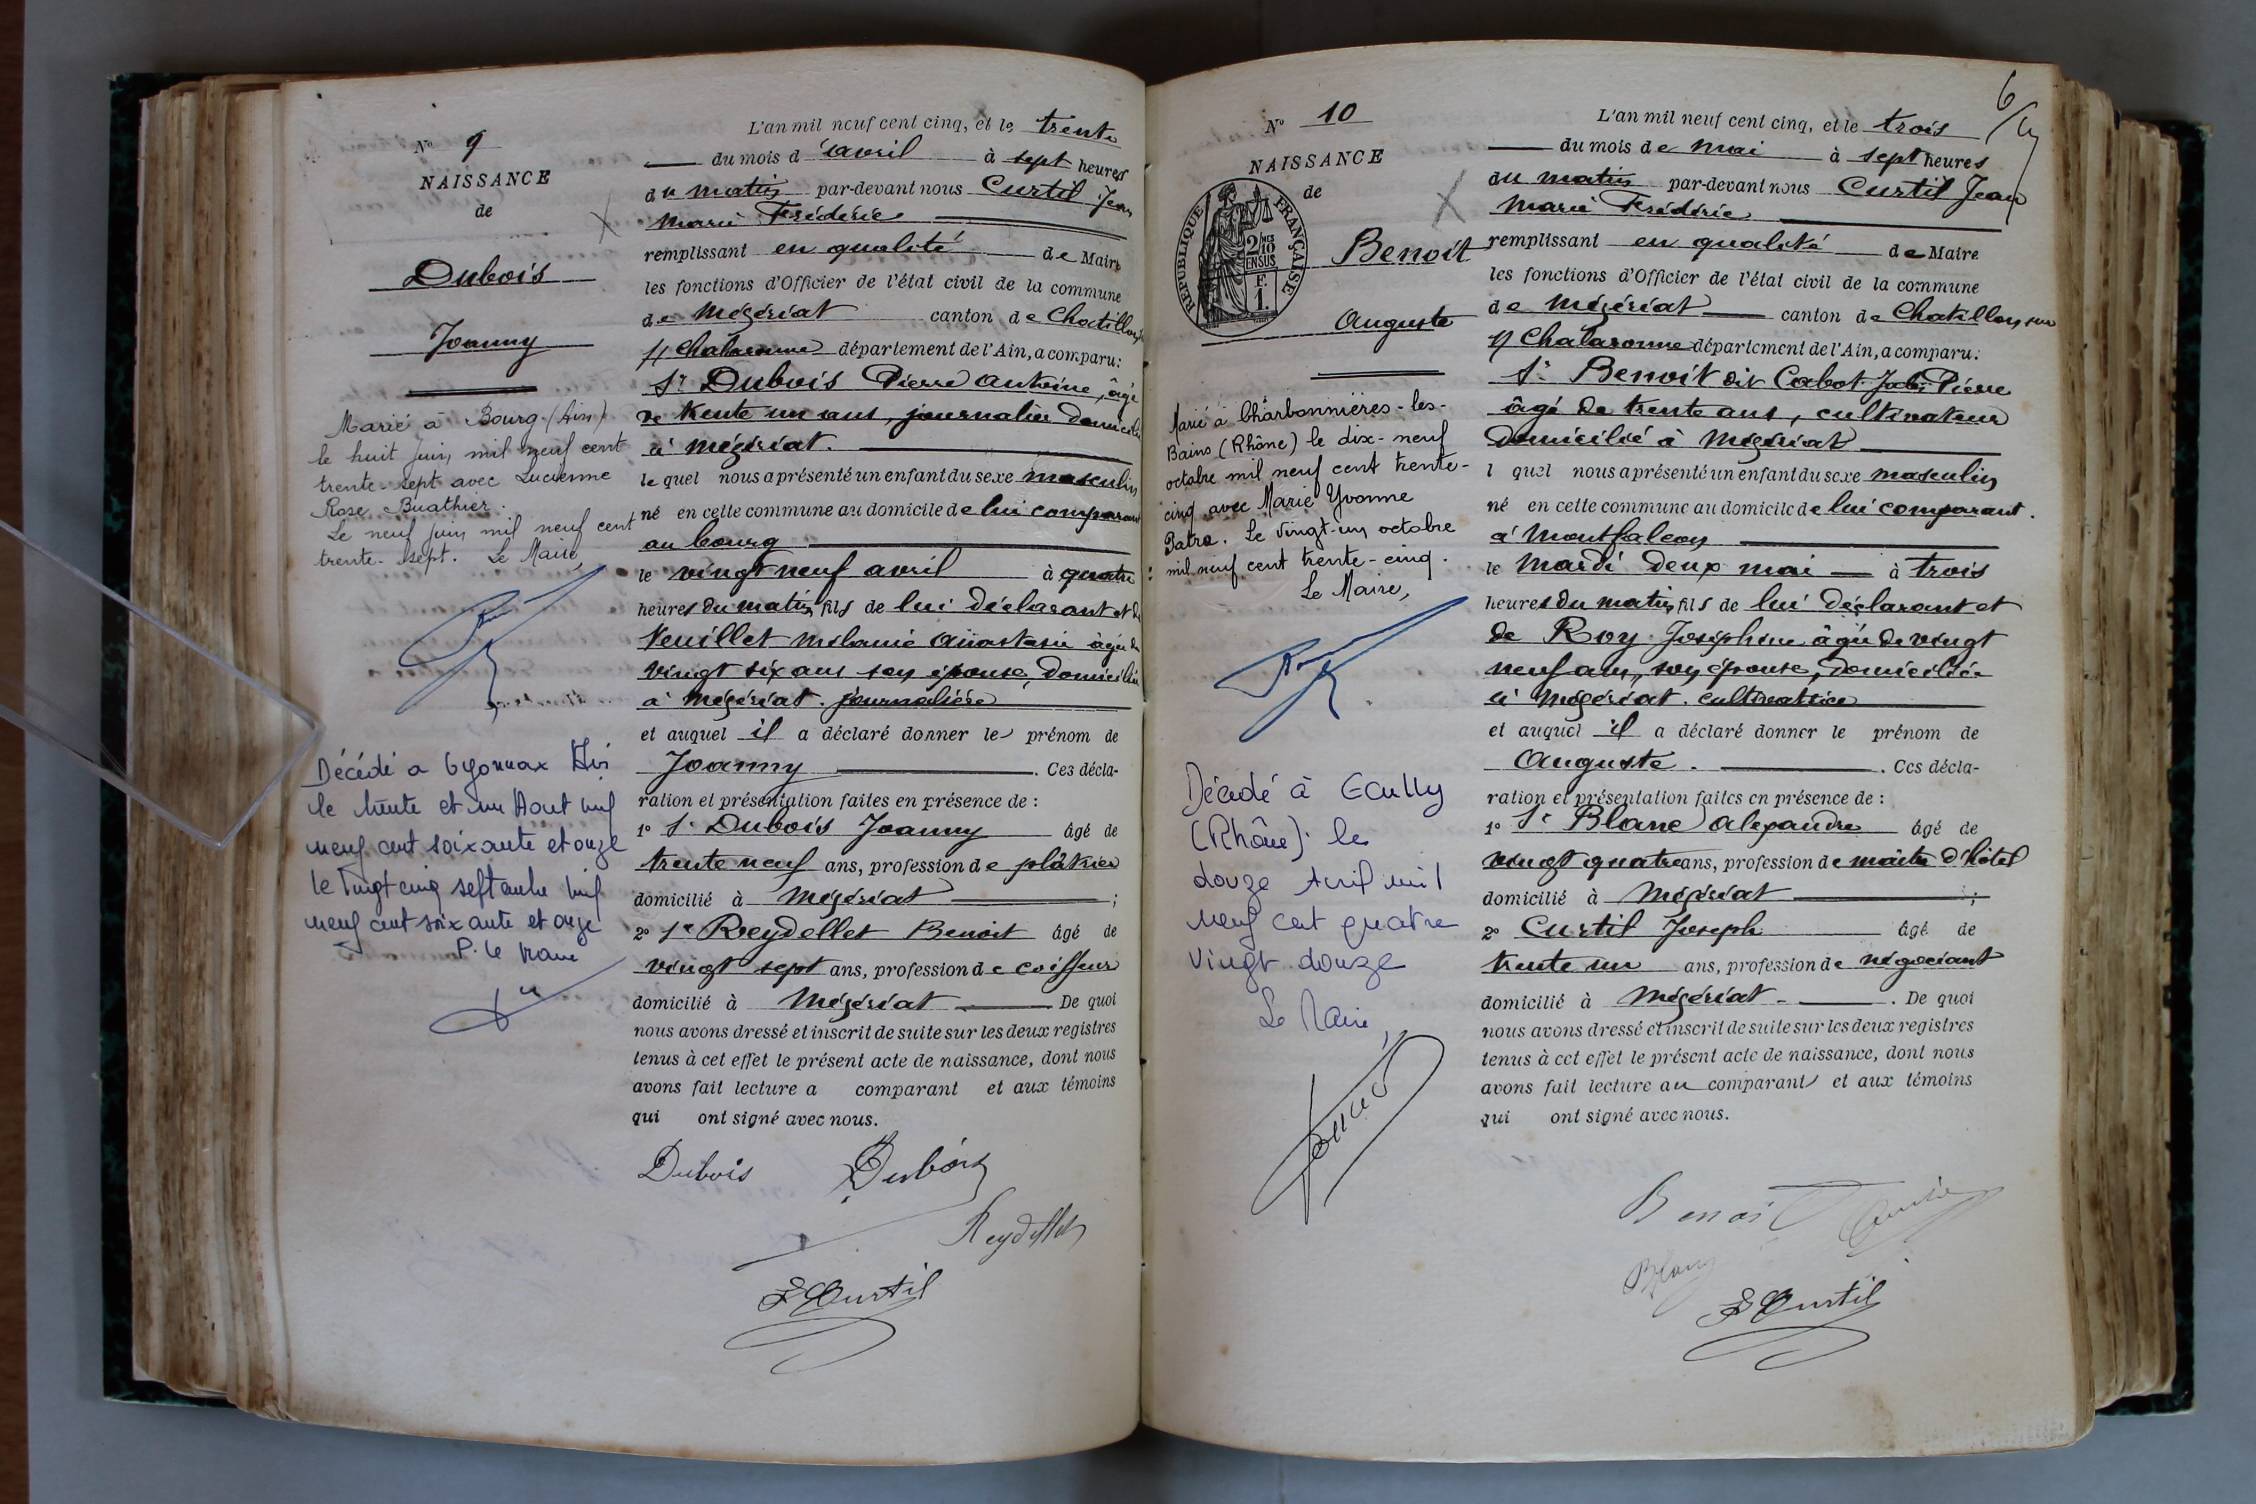 N° 9
NAISSANCE
de
Dubois
Joanny
Marié à Bourg (Ain)
le huit juin mil neuf cent
trente-sept avec Lucienne
Rose Buathier.
Le neuf juin mil neuf cent
trente-sept. Le Maire,
Décédé a Oyonnax Ain
le trente et un Aout mil
neuf cent soixante et onze
le vingt cinq septembre mil
neuf cent soixante et onze
P. le Maire
L'an mil neuf cent cinq, et le trente
du mois d'avril à sept heures
du matin par-devant nous Curtil Jean
Marie Frédéric
remplissant en qualité de Maire
les fonctions d'Officier de l'état civil de la commune
de Mézériat canton de Chatillon
s/ Chalaronne département de l'Ain, a comparu:
Sr Dubois Pierre Antoine, âgé
de trente un ans, journalier domicilié
à Mézériat.
lequel nous a présenté un enfant du sexe masculin
né en cette commune au domicile de lui comparant
au bourg
le vingt neuf avril à quatre
heures du matin, fils de lui déclarant et de
Veuillet Mélanie Anastasie âgée de
vingt six ans son épouse, domiciliée
à Mézériat. journalière
et auquel il a déclaré donner le prénom de
Joanny. Ces décla-
ration et présentation faites en présence de :
1° Sr Dubois Joanny âgé de
trente neuf ans, profession de plâtrier
domicilié à Mézériat ;
2° Sr Reydellet Benoit âgé de
vingt sept ans, profession de coiffeur
domicilié à Mézériat De quoi
nous avons dressé et inscrit de suite sur les deux registres
tenus à cet effet le présent acte de naissance, dont nous
avons fait lecture a comparant et aux témoins
qui ont signé avec nous.
Dubois Dubois
Reydellet
F Curtil
6
N° 10
NAISSANCE
de
RÉPUBLIQUE FRANÇAISE
2/10 EN SUS
F. 1.
Benoit
Auguste
Marié à Charbonnières-les-
Bains (Rhône) le dix-neuf
octobre mil neuf cent trente-
cinq avec Marie Yvonne
Patra. Le vingt-un octobre
mil neuf cent trente-cinq.
Le Maire,
Décédé à Ecully
(Rhône) le
douze Avril mil
neuf cent quatre
vingt douze
Le Maire,
L'an mil neuf cent cinq, et le trois
du mois de mai à sept heures
du matin par-devant nous Curtil Jean
Marie Frédéric
remplissant en qualité de Maire
les fonctions d'Officier de l'état civil de la commune
de Mézériat canton de Chatillon sur
s/ Chalaronne département de l'Ain, a comparu:
Sr Benoit dit Cabot Pierre
âgé de trente ans, cultivateur
domicilié à Mézériat
l quel nous a présenté un enfant du sexe masculin
né en cette commune au domicile de lui comparant.
à Montfalcon
le mardi deux mai à trois
heures du matin, fils de lui déclarant et
de Roy Joséphine âgée de vingt
neuf ans, son épouse, domiciliée
à Mézériat. cultivatrice
et auquel il a déclaré donner le prénom de
Auguste. Ces décla-
ration et présentation faites en présence de :
1° Sr Blanc Alexandre âgé de
vingt quatre ans, profession de maître d'hôtel
domicilié à Mézériat ;
2° Curtil Joseph âgé de
trente un ans, profession de négociant
domicilié à Mézériat. De quoi
nous avons dressé et inscrit de suite sur les deux registres
tenus à cet effet le présent acte de naissance, dont nous
avons fait lecture au comparant et aux témoins
qui ont signé avec nous.
Benoit
Blanc
F Curtil